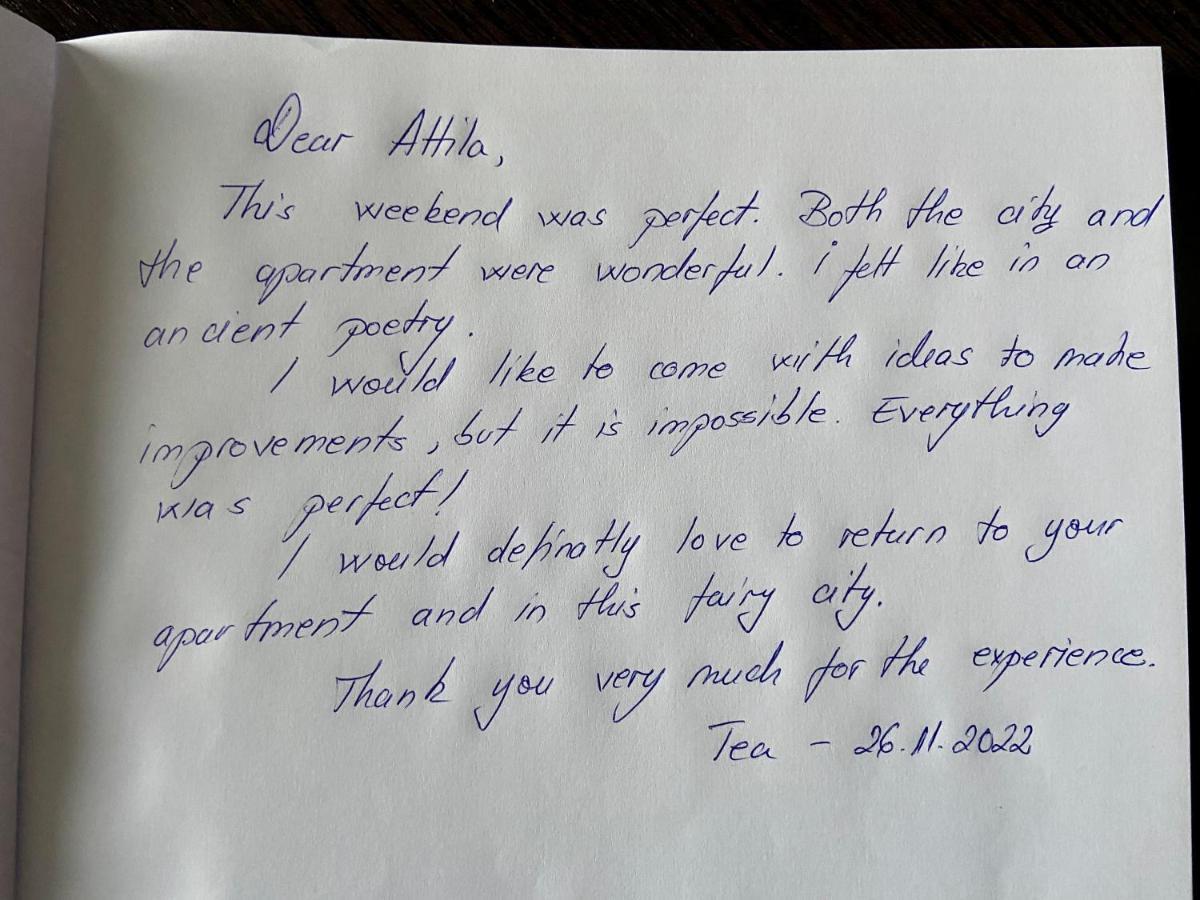 Dear Attila,
This weekend was perfect. Both the city and
the apartment were wonderful. i felt like in an
ancient poetry.
I would like to come with ideas to make
improvements, but it is impossible. Everything
was perfect!
I would definatly love to return to your
apartment and in this fairy city.
Thank you very much for the experience.
Tea - 26.11.2022